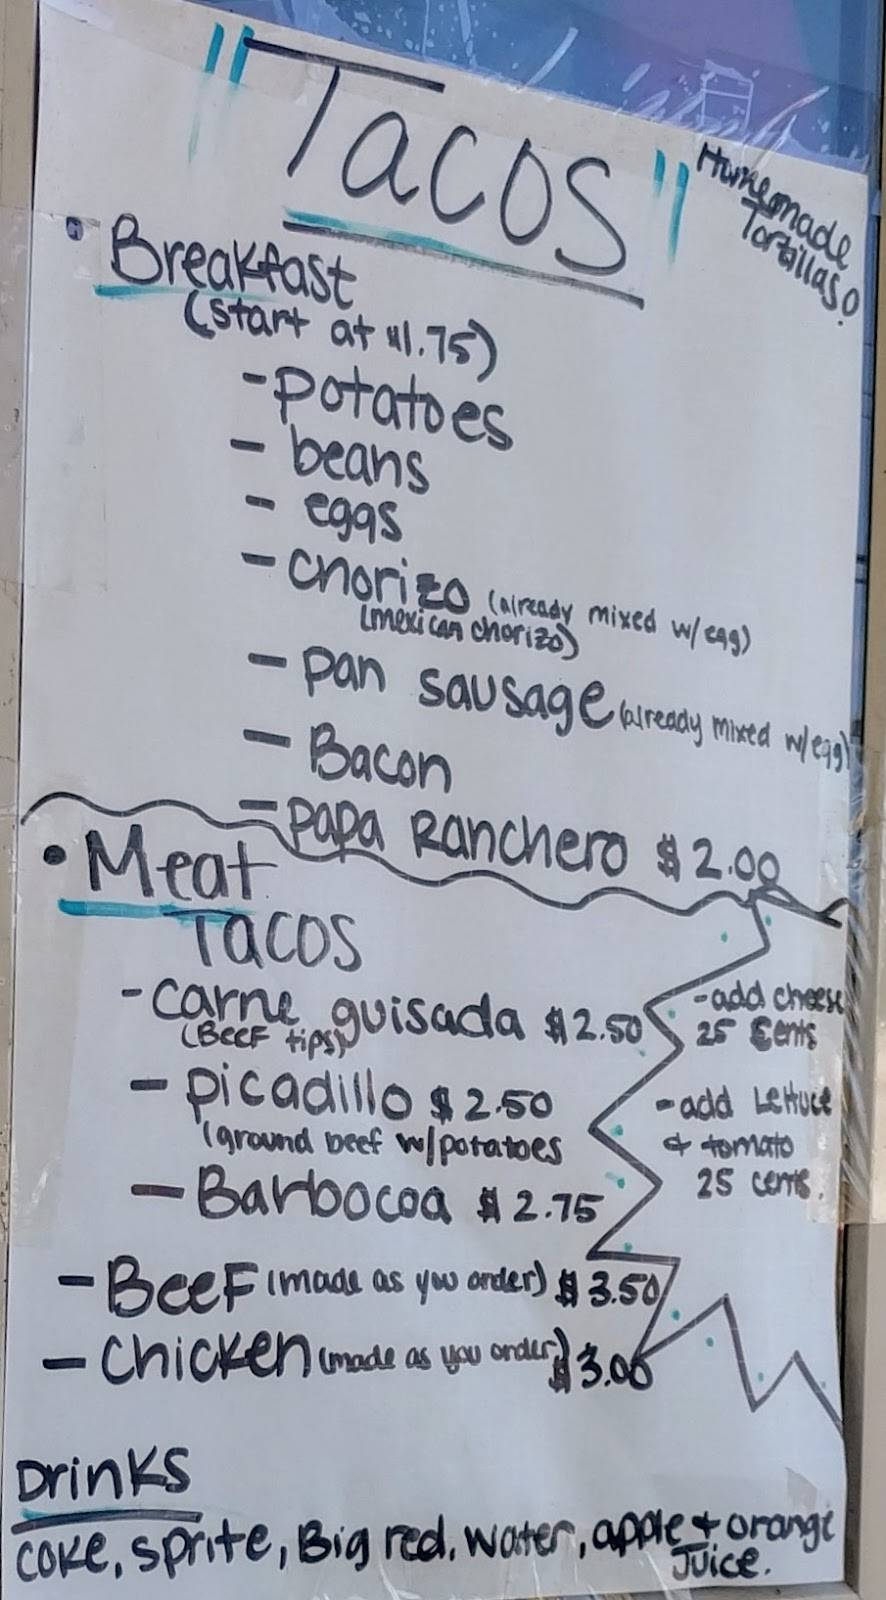 "Tacos"
Homemade
Tortillas!
• Breakfast
(start at $1.75)
- potatoes
- beans
- eggs
- chorizo (already mixed w/egg)
(mexican chorizo)
- pan sausage (already mixed w/egg)
- Bacon
- papa Ranchero $2.00
• Meat
Tacos
- carne guisada $2.50
(Beef tips)
- picadillo $2.50
(ground beef w/potatoes
- Barbocoa $2.75
- Beef (made as you order) $3.50
- Chicken (made as you order) $3.00
- add cheese
25 cents
- add Lettuce
& tomato
25 cents.
Drinks
coke, sprite, Big red, water, apple + orange
Juice.